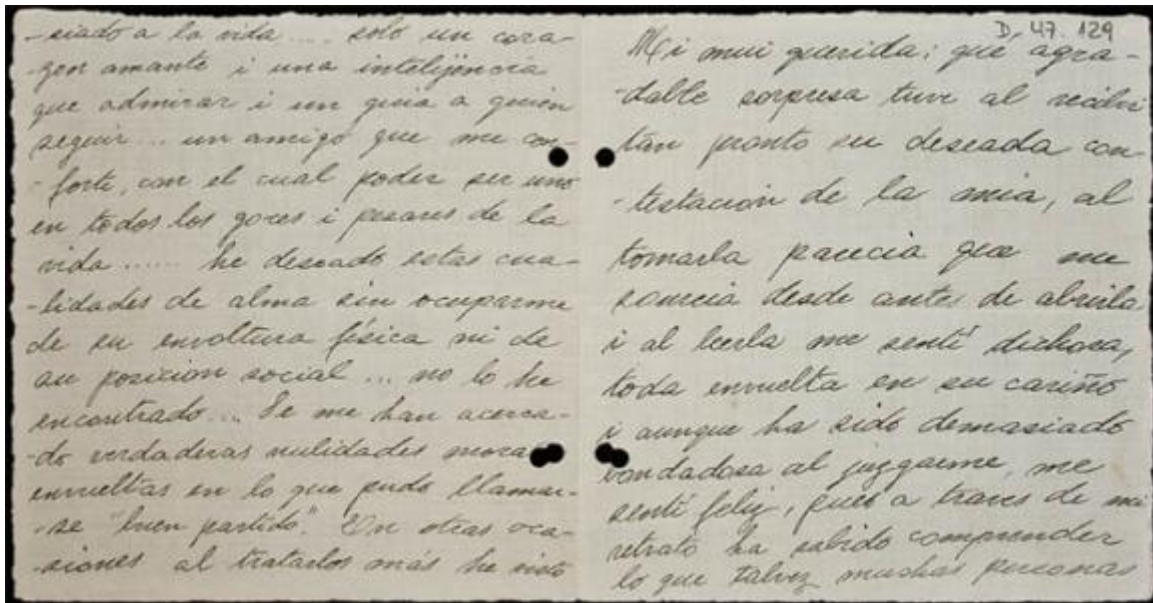 -siado a la vida .... solo un cora-
-zon amante i una intelijencia
que admirar i un guia a quien
seguir ... un amigo que me con-
-forte, con el cual poder ser uno
en todos los goces i pesares de la
vida ...... he deseado estas cua-
-lidades de alma sin ocuparme
de su envoltura física ni de
su posicion social ... no lo he
encontrado ... Se me han acerca-
-do verdaderas nulidades mora
envueltas en lo que pudo llamar-
-se "buen partido." En otras oca-
-siones al tratarlos más he visto
D. 47. 129
Mi mui querida: qué agra-
-dable sorpresa tuve al recibir
tan pronto su deseada con-
-testacion de la mia, al
tomarla parecia que me
sonreia desde antes de abrirla
i al leerla me sentí dichosa,
toda envuelta en su cariño
i aunque ha sido demasiado
bondadosa al juzgarme, me
sentí feliz, pues a traves de mi
retrato ha sabido comprender
lo que talvez muchas personas